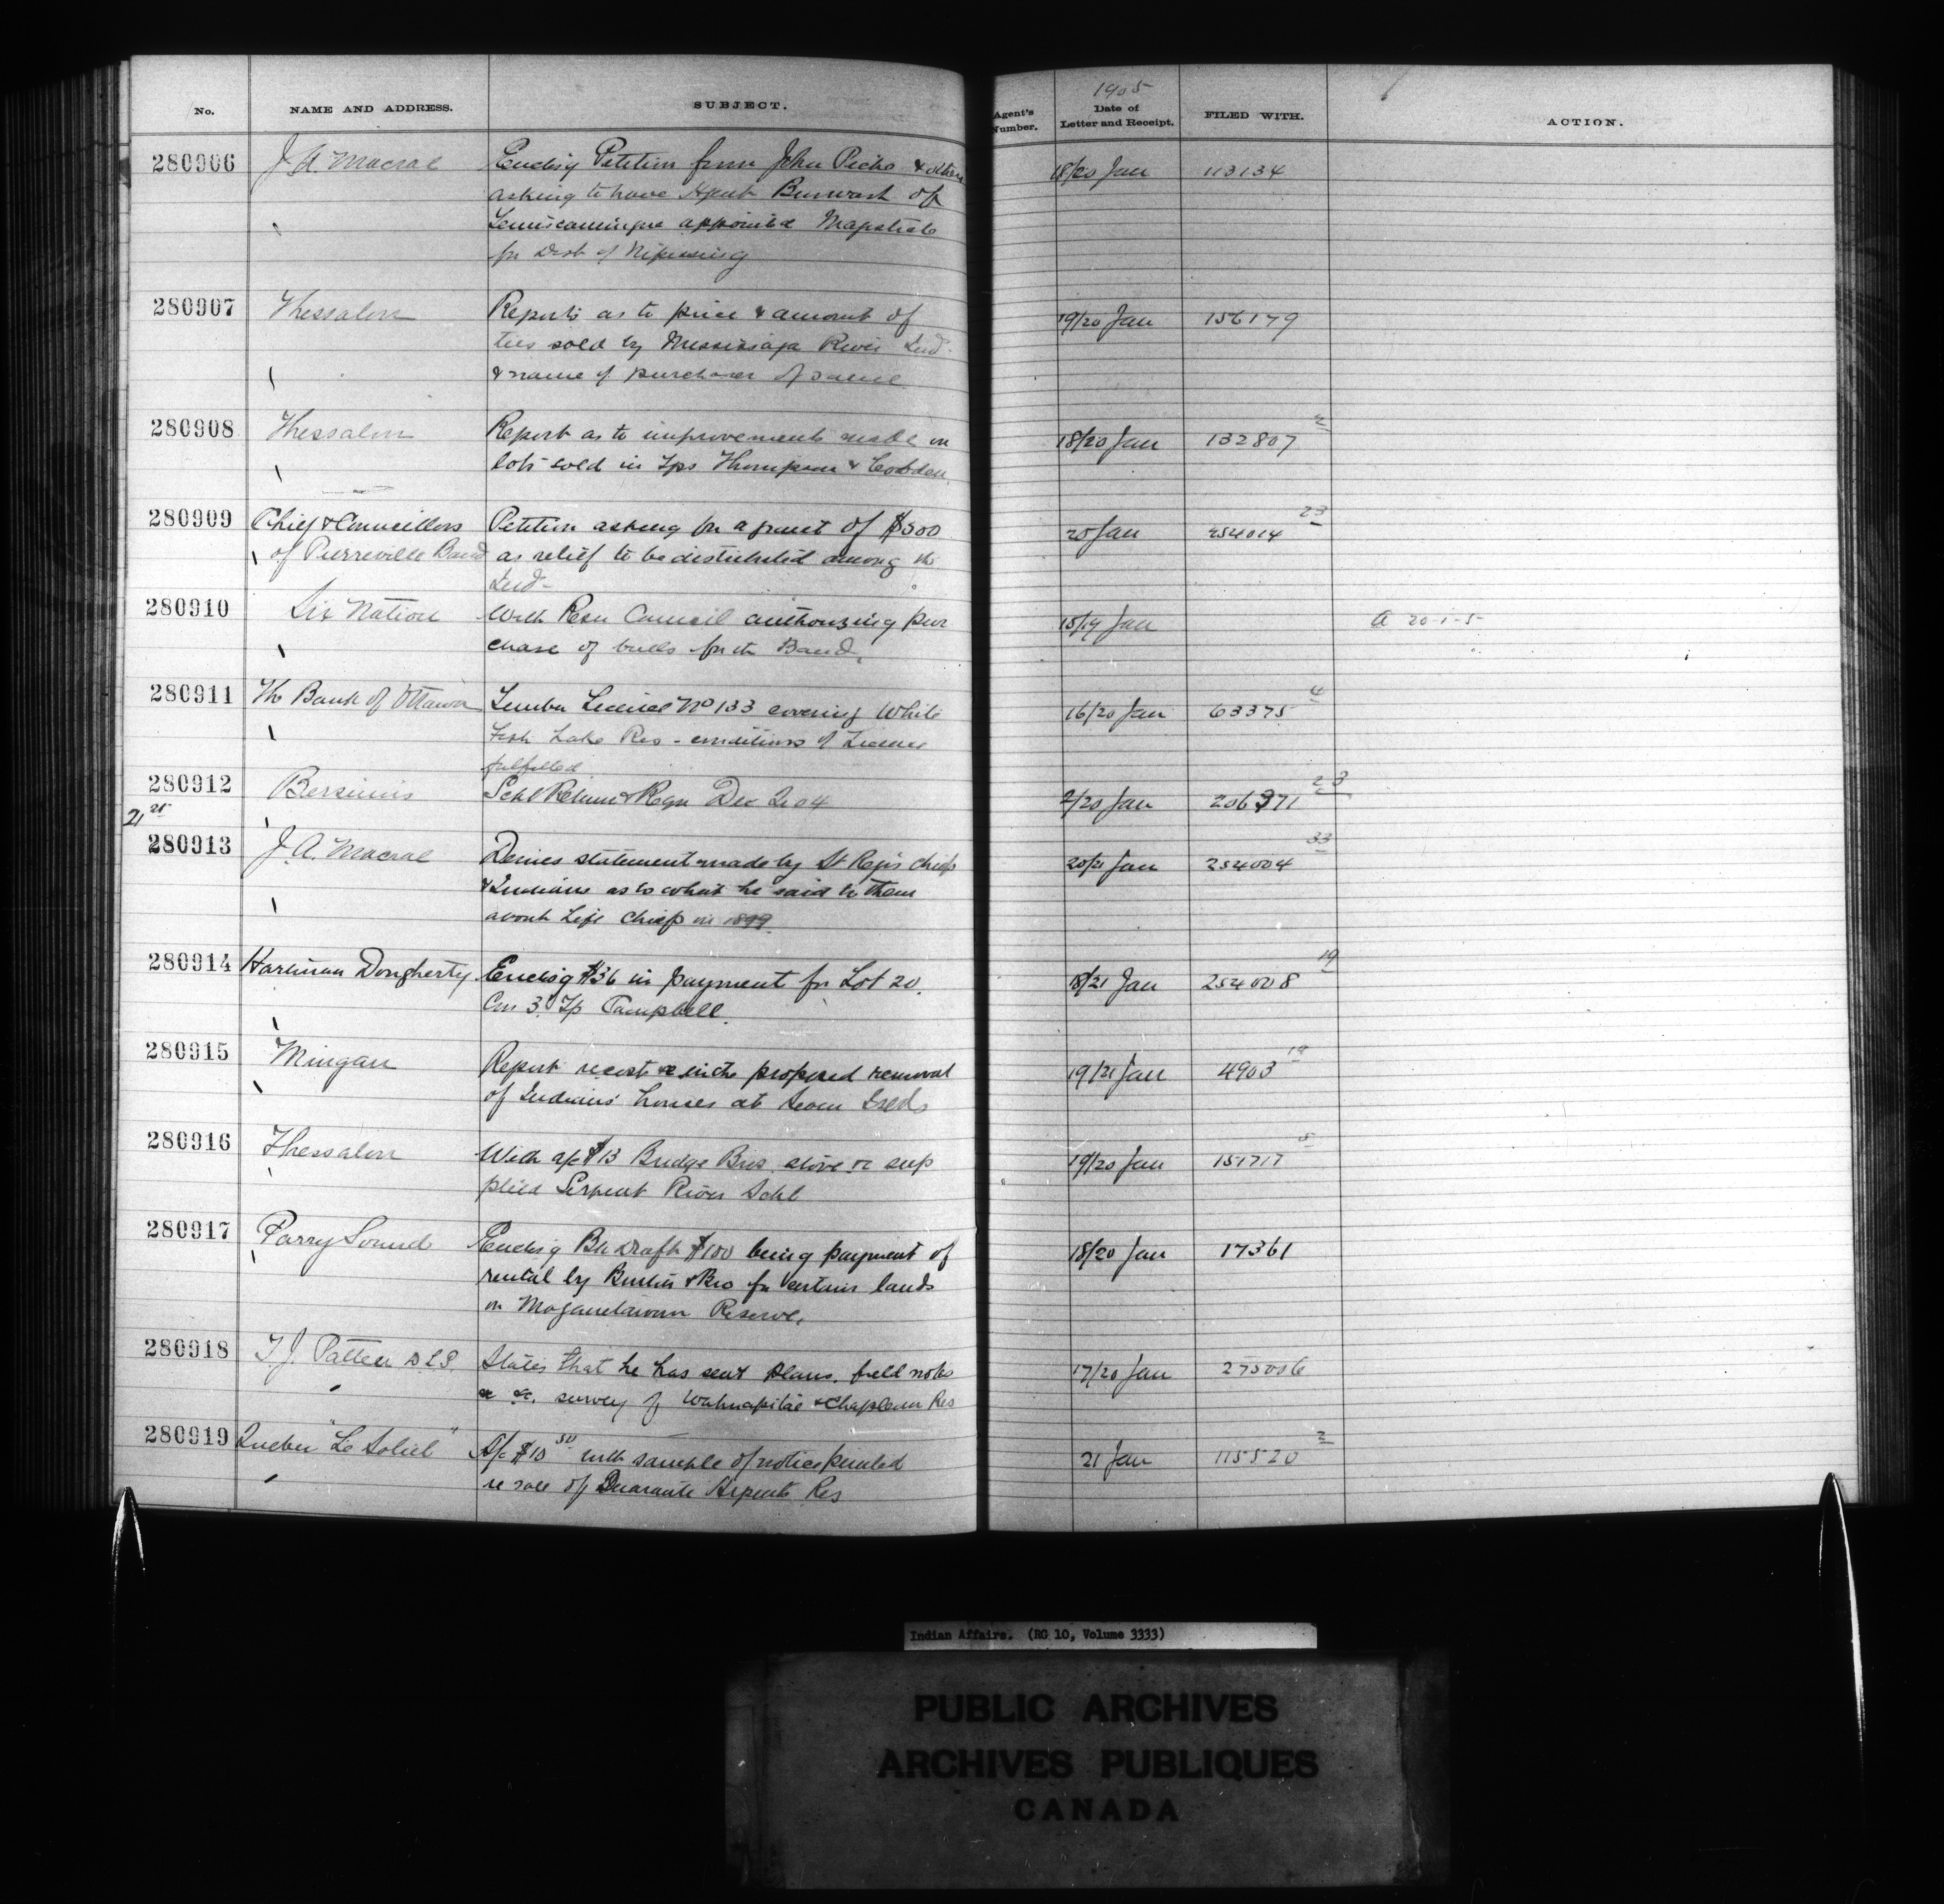 No. NAME AND ADDRESS. SUBJECT. Agent's Number. 1905 Date of Letter and Receipt. FILED WITH. ACTION.
280906 J. A. Macrae Encls'g Petition from John Pecho & others 18/20 Jan 113134
asking to have Agent Burwash of
Temiscamingue appointed Magistrate
for Dist of Nipissing
280907 Thessalon Reports as to price & amount of 19/20 Jan 156179
ties sold by Mississaga River Ind
& name of purchaser of same
280908 Thessalon Report as to improvements made on 18/20 Jan 132807 2
lots sold in Tps Thompson & Cobden
280909 Chief & Councillors Petition asking for a grant of $500 20 Jan 254014 23
of Pierreville Band as relief to be distributed among the
Ind-
280910 Six Nation With Resn Council authorizing pur 15/19 Jan A 20-1-5-
chase of bulls for the Band.
280911 The Bank of Ottawa Timber License No 133 covering White 16/20 Jan 63375 4
Fish Lake Res - conditions of License
fulfilled
280912 Bersimis Schl Return & Reqn Dec Q 04 2/20 Jan 206371 23
21st
280913 J. A. Macrae Denies statement made by St Regis chiefs 20/21 Jan 254004 33
& Indians as to what he said to them
about Life Chiefs in 1899.
280914 Hariman Dougherty Encls'g $36 in payment for Lot 20 18/21 Jan 254008 19
Con 3. Tp Campbell.
280915 Mingan Report re cost &c in the proposed removal 19/21 Jan 4903 19
of Indians' houses at Seven Islds
280916 Thessalon With a/c $13 Budge Bros stove &c sup 19/20 Jan 151717 5
plied Serpent River Schl
280917 Parry Sound Encls'g Bk Draft $100 being payment of 18/20 Jan 17361
rental by & Bro for certain lands
on Maganetawan Reserve.
280918 T. J. Patten D L S States that he has sent plans, field notes 17/20 Jan 275006
&c &c. survey of Wahnapitae & Chapleau Res
280919 Quebec "Le Soleil" A/c $10 50 with sample of notice printed 21 Jan 115520 2
re sale of Quarante Arpents Res
Indian Affairs. (RG 10, Volume 3333)
PUBLIC ARCHIVES
ARCHIVES PUBLIQUES
CANADA